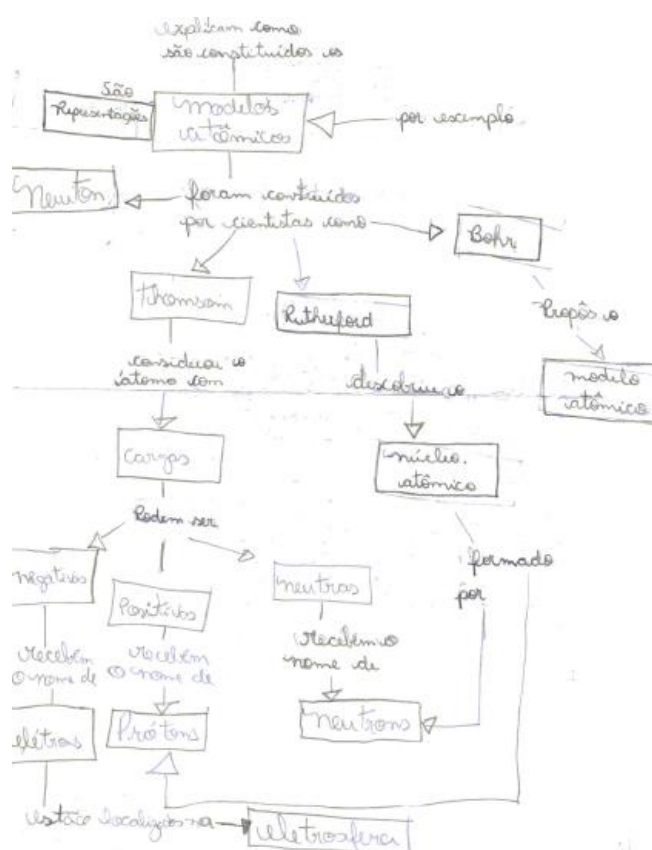 explicam como
são constituídos os
São
Representações
modelos
atômicos
por exemplo
Newton
foram contruídos
por cientistas como
Bohr
Thomson
Rutherford
Propôs o
considerou o
átomo com
descobriu o
modelo
atômico
Cargas
núcleo
atômico
Podem ser
negativas
Positivas
neutras
formado
por
recebem
o nome de
recebem
o nome de
recebem o
nome de
elétros
Prótons
neutrons
estão localizados na
eletrosfera